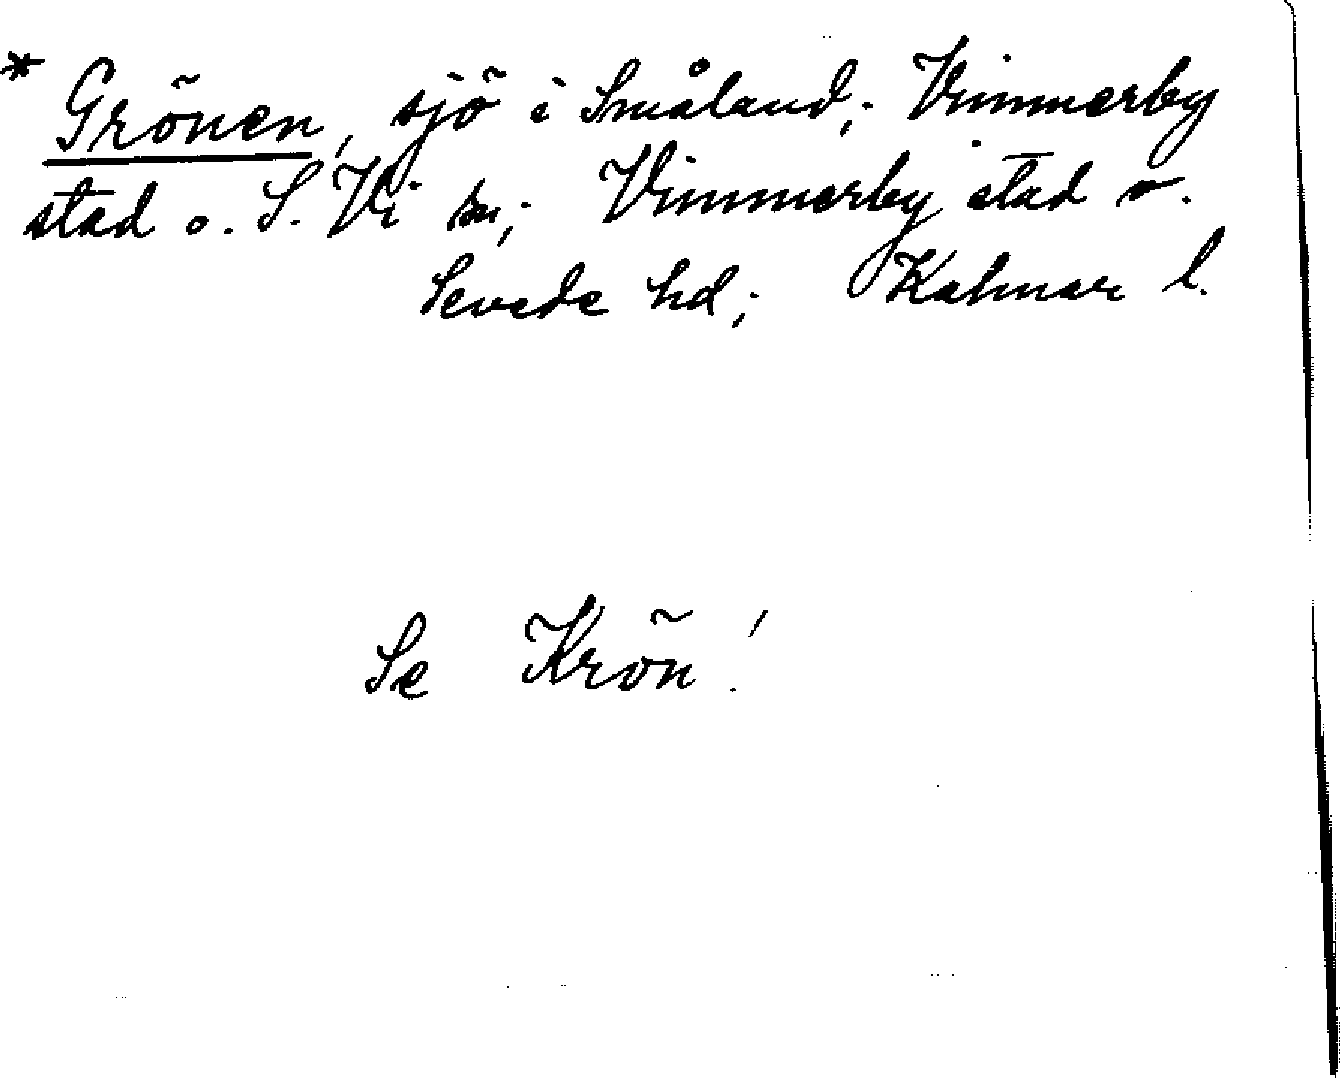 * Grönen, sjö i Småland; Vimmerby
stad o. S. Vi sn; Vimmerby stad o.
Sevede hd; Kalmar l.
Se Krön!